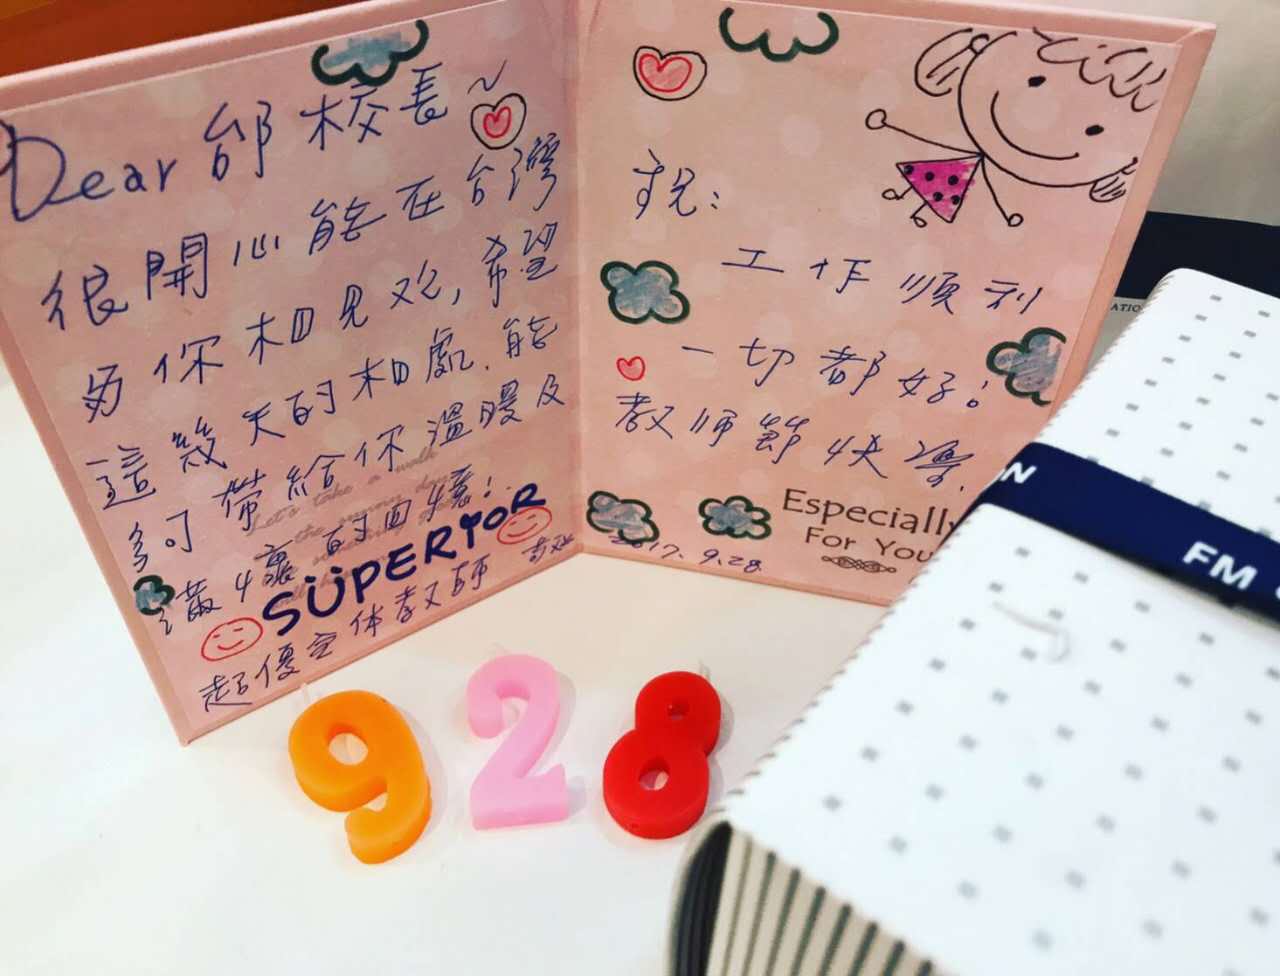 Dear 邰校長~
很開心能在台灣
与你相見欢,希望
這幾天的相處.能
够可帶給你溫暖及
滿満的回憶!
SUPERIOR
超優全体教师
祝:
工作順利
一切都好!
教师節快樂.
Especially
For You
2017.9.28.
928
FM